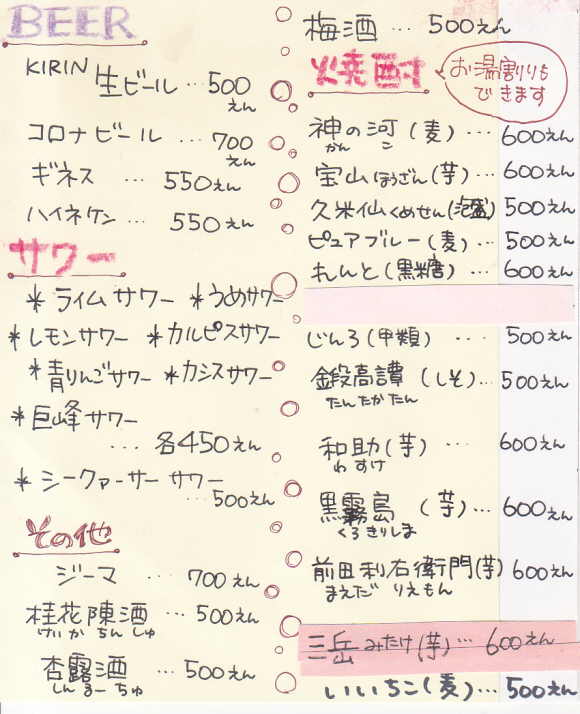 BEER
KIRIN 生ビール … 500えん
コロナビール … 700えん
ギネス … 550えん
ハイネケン … 550えん
サワー
*ライムサワー *うめサワー
*レモンサワー *カルピスサワー
*青りんごサワー *カシスサワー
*巨峰サワー
… 各450えん
*シークァーサーサワー
… 500えん
その他
ジーマ … 700えん
桂花陳酒 … 500えん
けいかちんしゅ
杏露酒 … 500えん
しんるーちゅ
梅酒 … 500えん
焼酎
お湯割りも
できます
神の河(麦) … 600えん
かん こ
宝山ほうざん(芋) … 600えん
久米仙くめせん(泡盛) 500えん
ピュアブルー(麦) … 500えん
れんと(黒糖) … 600えん
じんろ(甲類) … 500えん
鍛高譚(しそ) … 500えん
たんたかたん
和助(芋) … 600えん
わすけ
黒霧島(芋) … 600えん
くろきりしま
前田利右衛門(芋) 600えん
まえだ りえもん
三岳みたけ(芋) … 600えん
いいちこ(麦) … 500えん